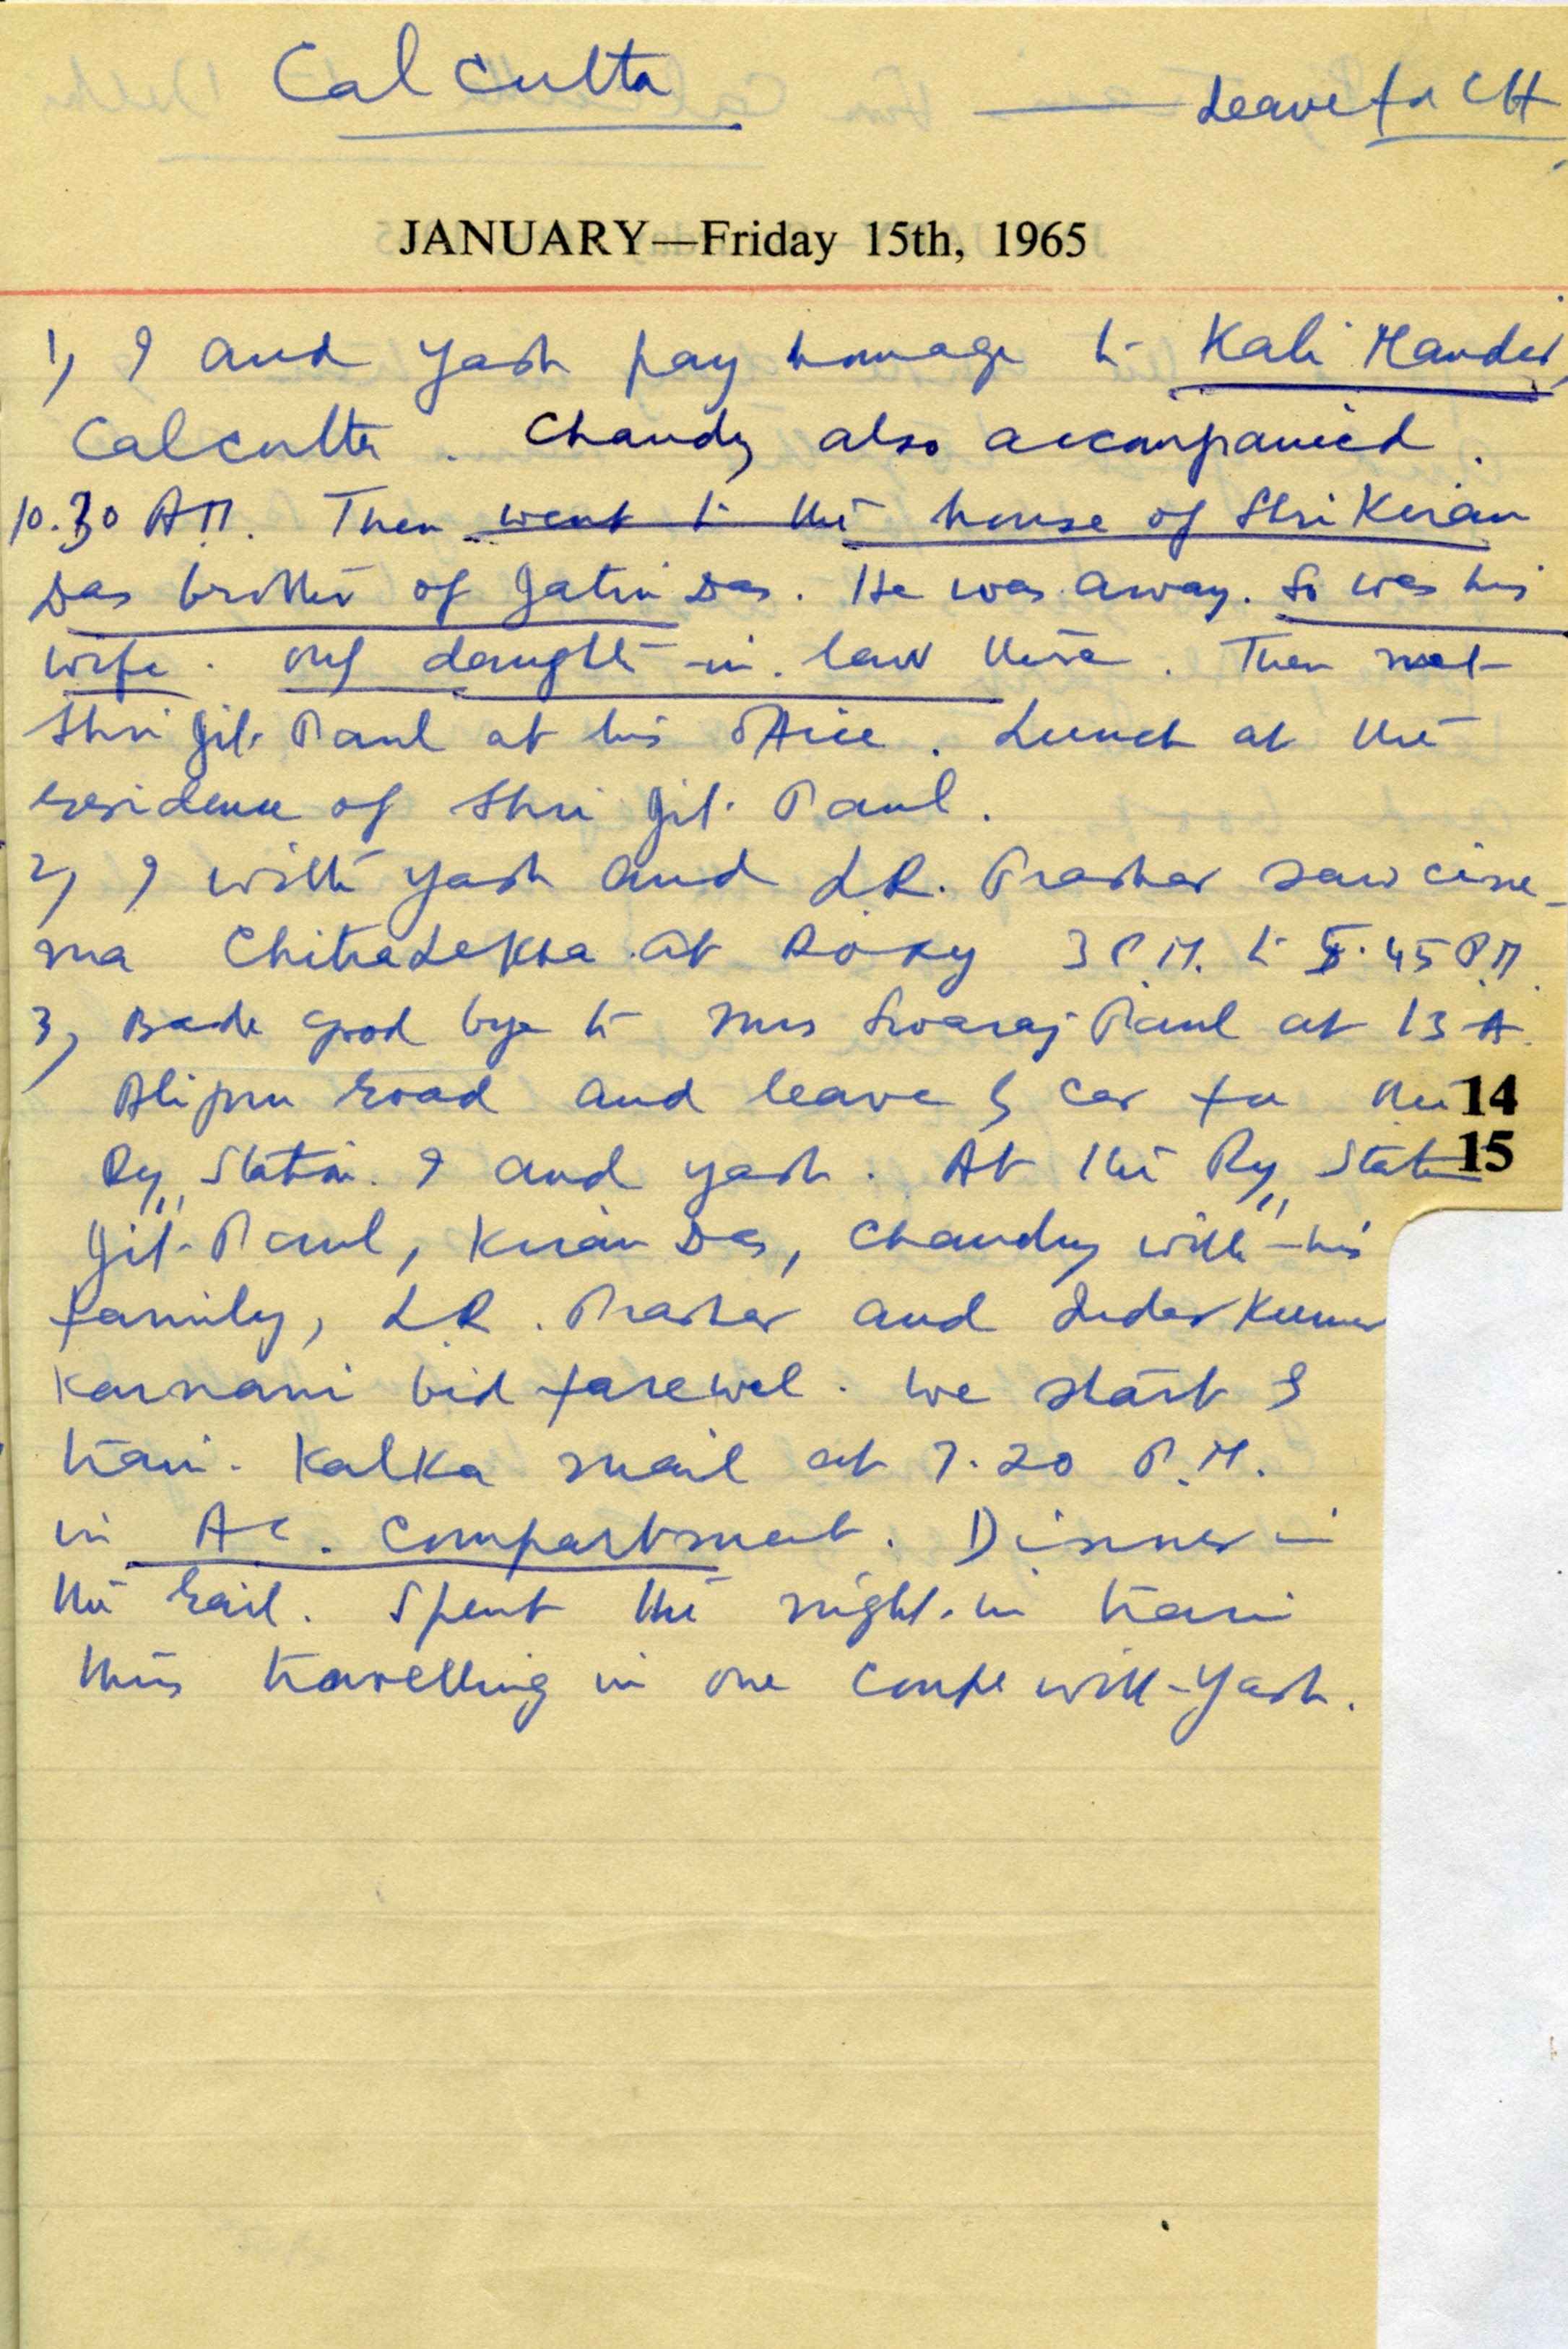 Calcutta
Leave for CH
JANUARY—Friday 15th, 1965
1, I and Yash pay homage to Kali Mander,
Calcutta. Chandy also accompanied.
10.30 AM. Then went to the house of Shri Kiran
Das brother of Jatin Das. He was away. So was his
wife. only daughter-in-law there. Then met
Shri Jit Paul at his office. Lunch at the
residence of Shri Jit Paul.
2, I with Yash and L.R. Prasher saw cine-
ma ChitraLekha at Roxy 3 P.M. to 5.45 P.M.
3, Bade good bye to Mrs Swaraj Paul at 13 A
Alipur Road and leave by car for the
Ry Station. I and Yash. At the Ry Station
Jit Paul, Kiran Das, Chandy with his
family, L.R. Prasher and Inder Kumar
Karnani bid farewel. We start by
train. Kalka mail at 7.20 P.M.
in A.C. Compartment. Dinner in
the rail. Spent the night in train
thus travelling in one coupe with Yash.
14
15